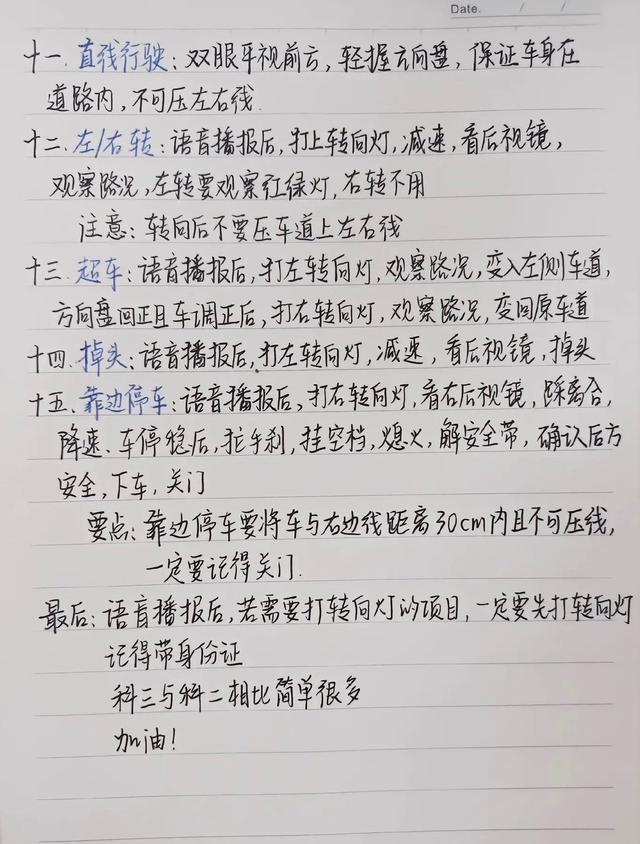 Date. / /
十一. 直线行驶：双眼平视前方，轻握方向盘，保证车身在
道路内，不可压左右线.
十二. 左/右转：语音播报后，打上转向灯，减速，看后视镜，
观察路况，左转要观察红绿灯，右转不用
注意：转向后不要压车道上左右线
十三. 超车：语音播报后，打左转向灯，观察路况，变入左侧车道，
方向盘回正且车调正后，打右转向灯，观察路况，变回原车道
十四. 掉头：语音播报后，打左转向灯，减速，看后视镜，掉头
十五. 靠边停车：语音播报后，打右转向灯，看右后视镜，踩离合，
降速、车停稳后，拉手刹，挂空档，熄火，解安全带，确认后方
安全，下车，关门
要点：靠边停车要将车与右边线距离30cm内且不可压线，
一定要记得关门.
最后：语音播报后，若需要打转向灯的项目，一定要先打转向灯
记得带身份证
科三与科二相比简单很多
加油！